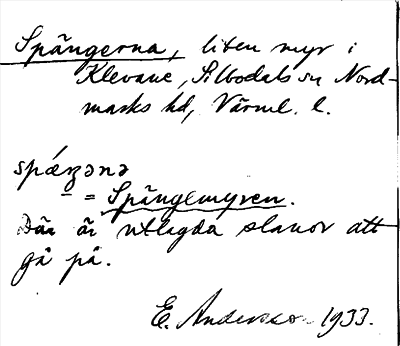 Spångerna, liten myr i
Klevane, Silbodals sn Nord-
marks hd, Värml. l.
spǽŋənə
= Spångemyren.
Där är utlagda slanor att
gå på.
E. Andersson 1933.